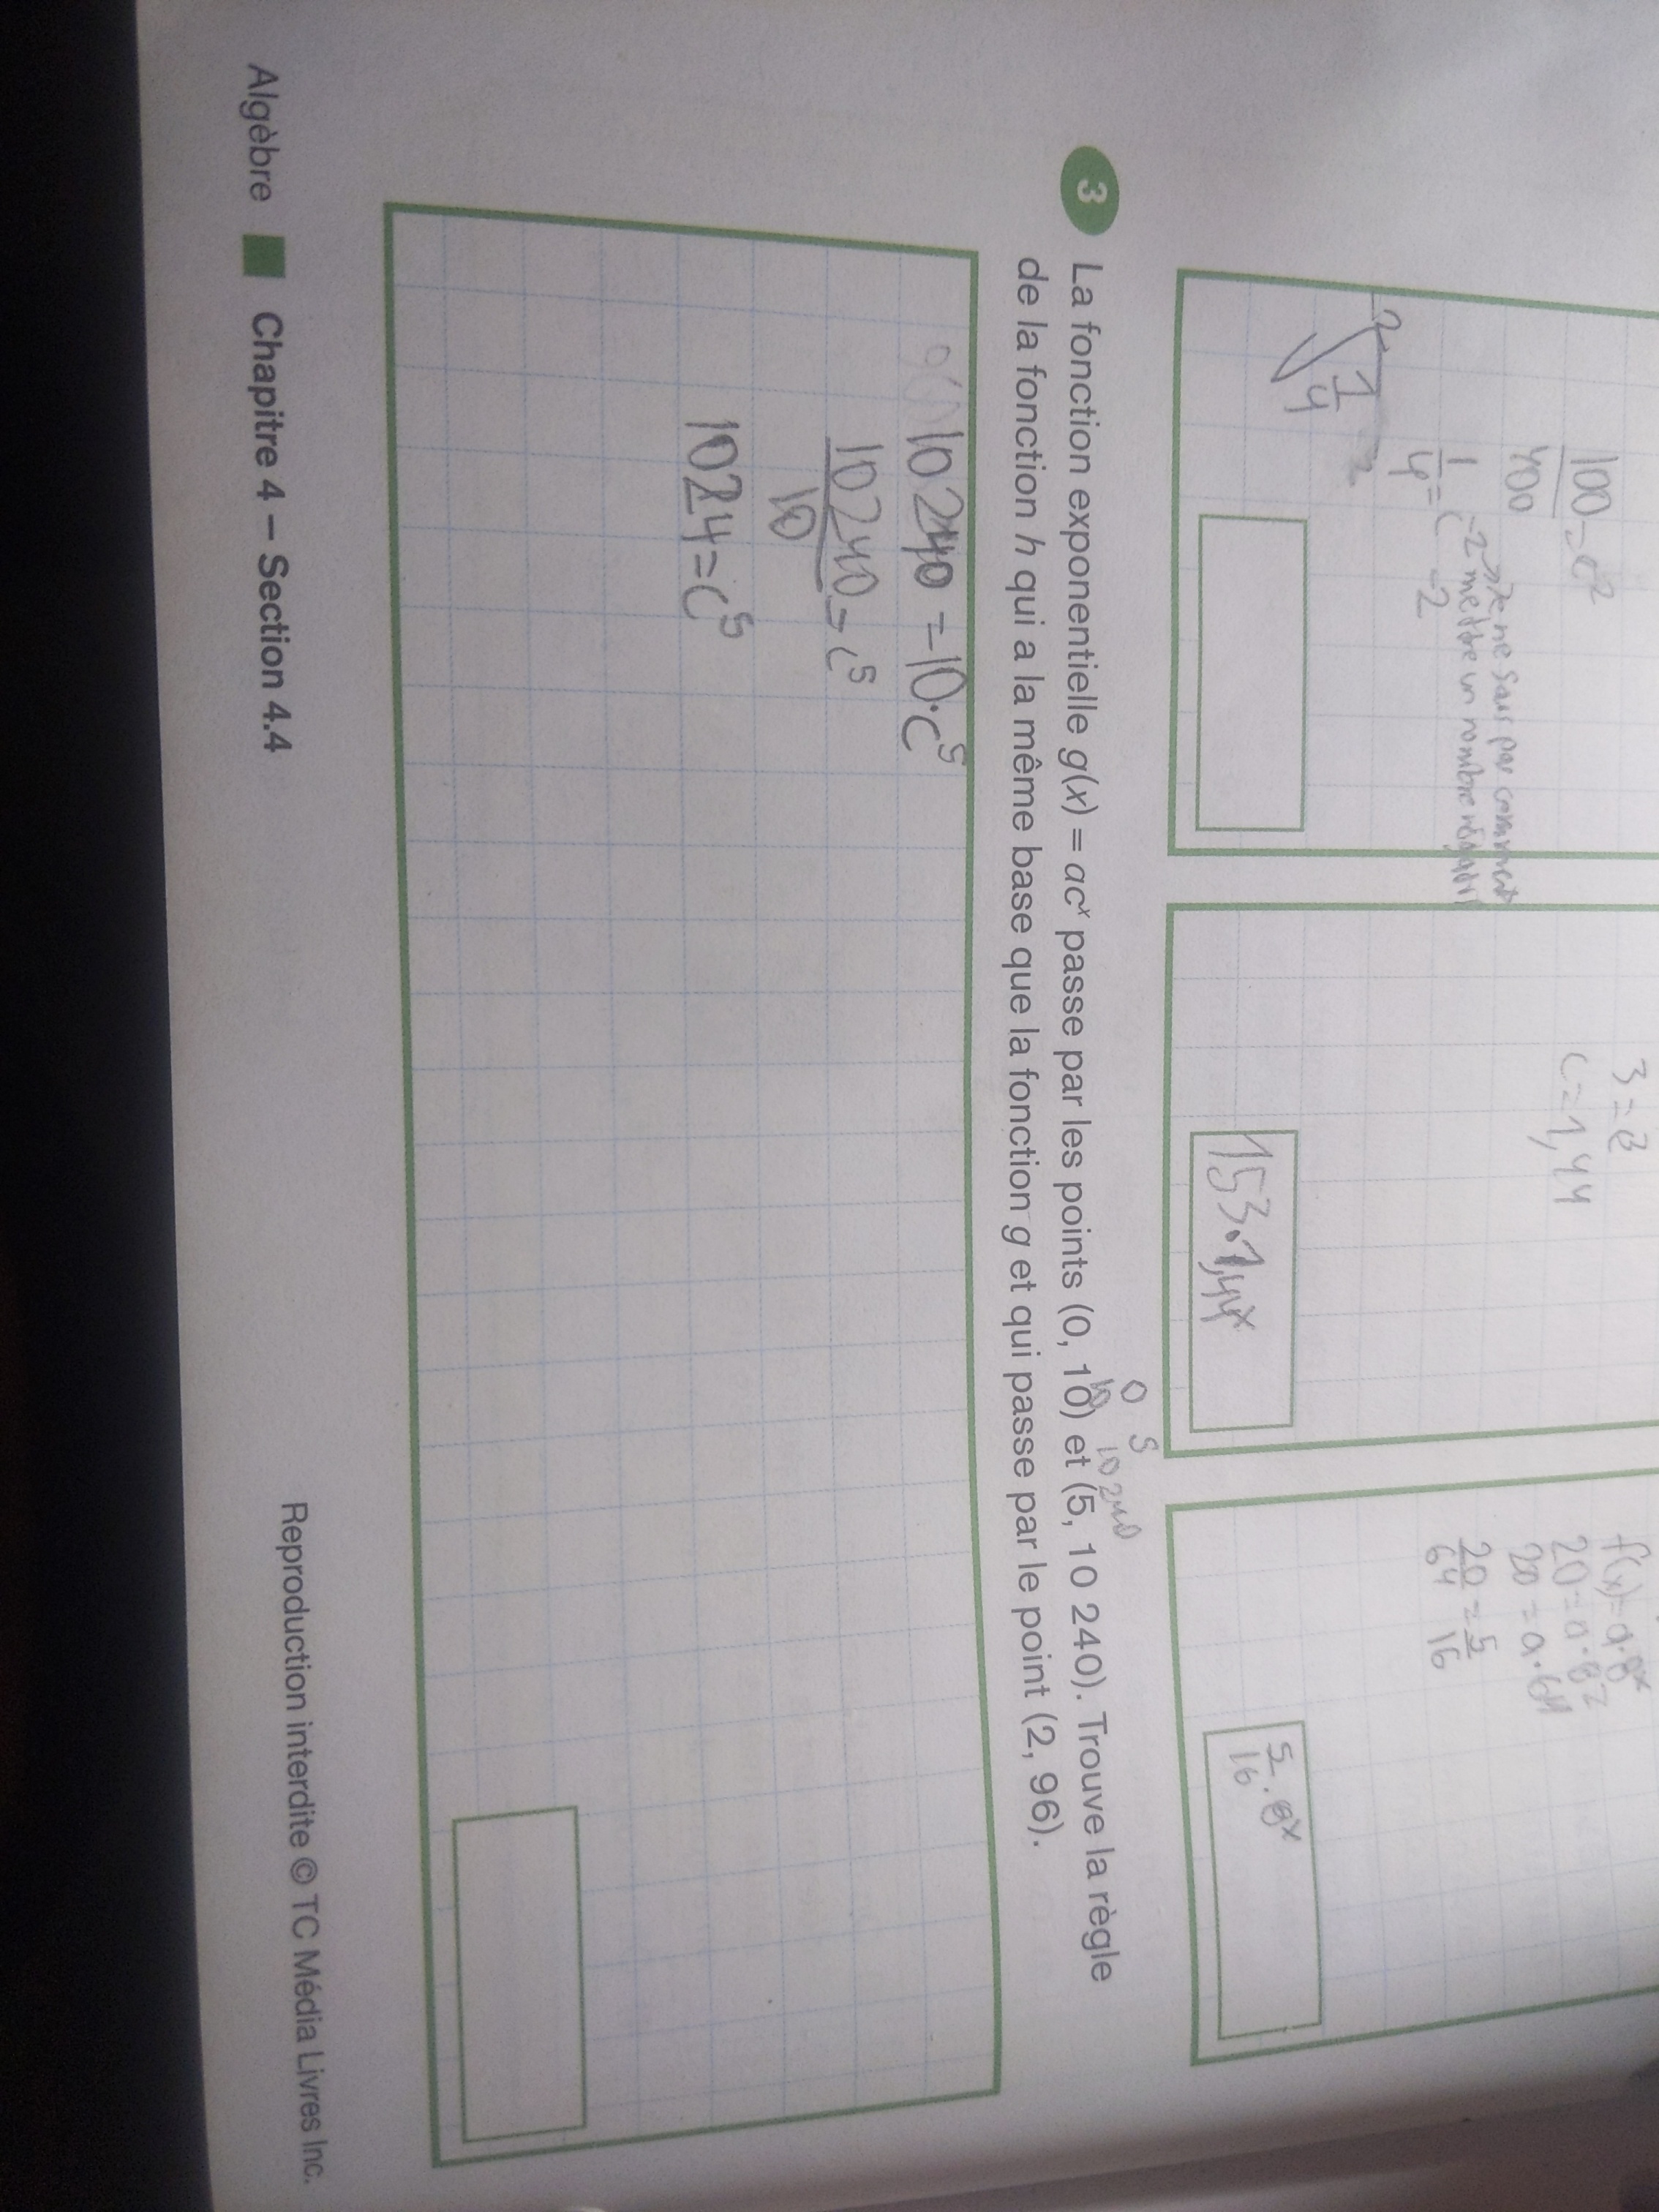 100 = c²
400
1 = c⁻² → Je ne sais pas comment
4 mettre un nombre négatif
-2
1
4
3 = c³
c = 1,44
153·1,44ˣ
f(x) = a·8ˣ
20 = a·8²
20 = a·64
20 = 5
64 16
5 · 8ˣ
16
0 5
10 10240
3 La fonction exponentielle g(x) = acˣ passe par les points (0, 10) et (5, 10 240). Trouve la règle
de la fonction h qui a la même base que la fonction g et qui passe par le point (2, 96).
10240 = 10·c⁵
10240 = c⁵
10
1024 = c⁵
Algèbre ■ Chapitre 4 – Section 4.4
Reproduction interdite © TC Média Livres Inc.